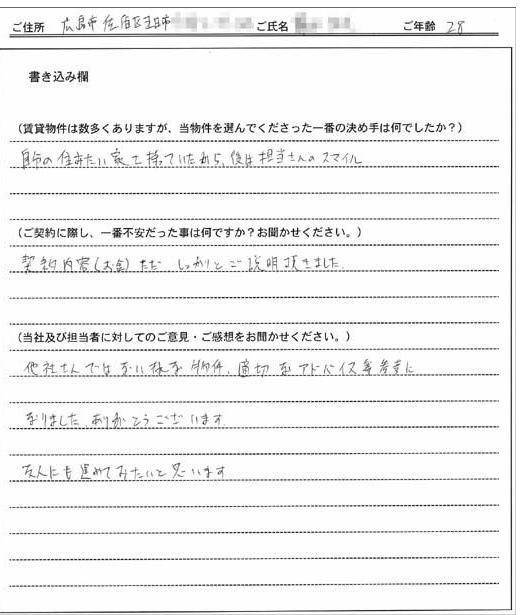 ご住所 広島市佐伯区五日市 ご氏名 ご年齢 28
書き込み欄
（賃貸物件は数多くありますが、当物件を選んでくださった一番の決め手は何でしたか？）
自分の住みたい家を探していたから、後は担当さんのスマイル
（ご契約に際し、一番不安だった事は何ですか？お聞かせください。）
契約内容(お金) ただ しっかりとご説明頂きました。
（当社及び担当者に対してのご意見・ご感想をお聞かせください。）
他社さんではない様な物件、適切なアドバイス等参考に
なりました。ありがとうございます。
友人にも進めてみたいと思います